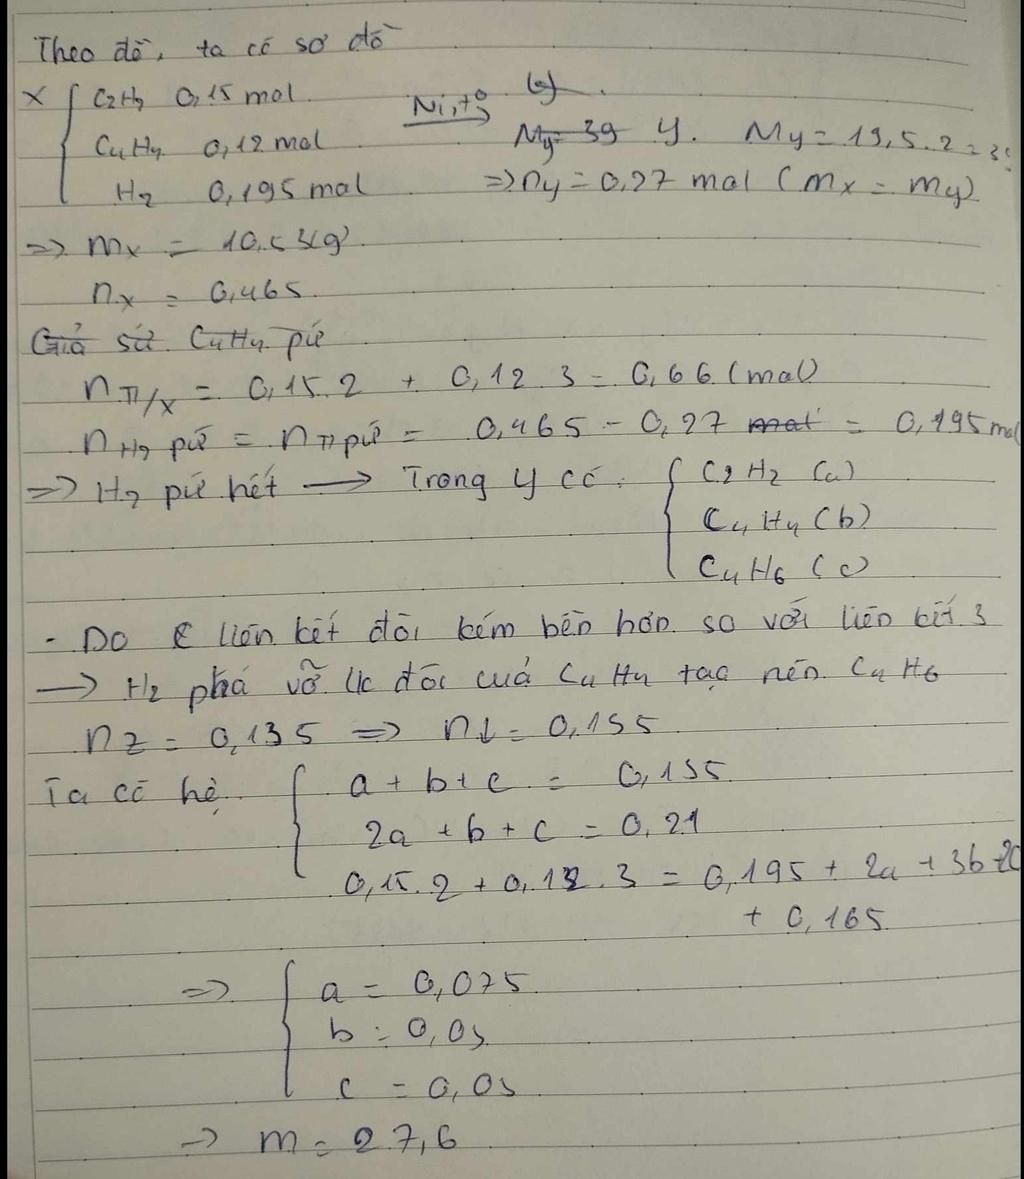 Theo đề, ta có sơ đồ
X { C2H2 0,15 mol
C4H4 0,12 mol Ni,t° Y. My = 19,5.2 = 3
H2 0,195 mol => ny = 0,27 mol (mx = my)
=> mx = 10,53(g)
nx = 0,465
Giả sử C4H4 pứ
nπ/x = 0,15.2 + 0,12.3 = 0,66 (mol)
nH2 pứ = nπ pứ = 0,465 - 0,27 mol = 0,195 mol
=> H2 pứ hết → Trong Y có: { C2H2 (a)
C4H4 (b)
C4H6 (c)
- Do liên kết đôi kém bền hơn so với liên kết 3
→ H2 phá vỡ lk đôi cuả C4H4 tạo nên C4H6
nz = 0,135 => n↓ = 0,135
Ta có hệ { a + b + c = 0,135
2a + b + c = 0,21
0,15.2 + 0,12.3 = 0,195 + 2a + 3b + 2c
+ 0,165
=> { a = 0,075
b = 0,03
c = 0,03
→ m = 27,6